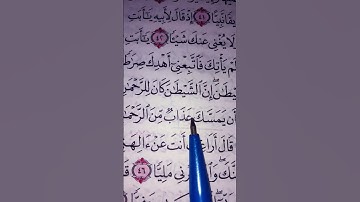 يقًا نَّبِيًّا ٤١ إِذۡ قَالَ لِأَبِيهِ يَٰٓأَبَتِ
لَا يُغۡنِي عَنكَ شَيۡـٔٗا ٤٢ يَٰٓأَبَتِ
لَمۡ يَأۡتِكَ فَٱتَّبِعۡنِيٓ أَهۡدِكَ صِرَٰطٗ
يۡطَٰنَۖ إِنَّ ٱلشَّيۡطَٰنَ كَانَ لِلرَّحۡمَٰنِ
أَن يَمَسَّكَ عَذَابٞ مِّنَ ٱلرَّحۡمَٰنِ
قَالَ أَرَاغِبٌ أَنتَ عَنۡ ءَالِهَتِ
نَّكَۖ وَٱهۡجُرۡنِي مَلِيّٗا ٤٦